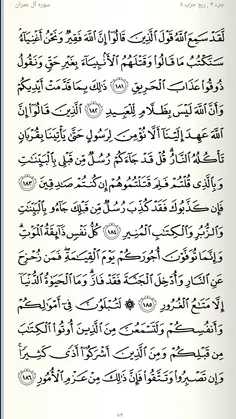 جزء ٤ , ربع حزب ٨ سورة آل عمران
لَّقَدْ سَمِعَ ٱللَّهُ قَوْلَ ٱلَّذِينَ قَالُوٓا۟ إِنَّ ٱللَّهَ فَقِيرٌ وَنَحْنُ أَغْنِيَآءُ
سَنَكْتُبُ مَا قَالُوا۟ وَقَتْلَهُمُ ٱلْأَنۢبِيَآءَ بِغَيْرِ حَقٍّ وَنَقُولُ
ذُوقُوا۟ عَذَابَ ٱلْحَرِيقِ ١٨١ ذَٰلِكَ بِمَا قَدَّمَتْ أَيْدِيكُمْ
وَأَنَّ ٱللَّهَ لَيْسَ بِظَلَّامٍ لِّلْعَبِيدِ ١٨٢ ٱلَّذِينَ قَالُوٓا۟ إِنَّ
ٱللَّهَ عَهِدَ إِلَيْنَآ أَلَّا نُؤْمِنَ لِرَسُولٍ حَتَّىٰ يَأْتِيَنَا بِقُرْبَانٍ
تَأْكُلُهُ ٱلنَّارُ قُلْ قَدْ جَآءَكُمْ رُسُلٌ مِّن قَبْلِى بِٱلْبَيِّنَٰتِ
وَبِٱلَّذِى قُلْتُمْ فَلِمَ قَتَلْتُمُوهُمْ إِن كُنتُمْ صَٰدِقِينَ ١٨٣
فَإِن كَذَّبُوكَ فَقَدْ كُذِّبَ رُسُلٌ مِّن قَبْلِكَ جَآءُو بِٱلْبَيِّنَٰتِ
وَٱلزُّبُرِ وَٱلْكِتَٰبِ ٱلْمُنِيرِ ١٨٤ كُلُّ نَفْسٍ ذَآئِقَةُ ٱلْمَوْتِ
وَإِنَّمَا تُوَفَّوْنَ أُجُورَكُمْ يَوْمَ ٱلْقِيَٰمَةِ فَمَن زُحْزِحَ
عَنِ ٱلنَّارِ وَأُدْخِلَ ٱلْجَنَّةَ فَقَدْ فَازَ وَمَا ٱلْحَيَوٰةُ ٱلدُّنْيَآ
إِلَّا مَتَٰعُ ٱلْغُرُورِ ١٨٥ ۞ لَتُبْلَوُنَّ فِىٓ أَمْوَٰلِكُمْ
وَأَنفُسِكُمْ وَلَتَسْمَعُنَّ مِنَ ٱلَّذِينَ أُوتُوا۟ ٱلْكِتَٰبَ
مِن قَبْلِكُمْ وَمِنَ ٱلَّذِينَ أَشْرَكُوٓا۟ أَذًى كَثِيرًا
وَإِن تَصْبِرُوا۟ وَتَتَّقُوا۟ فَإِنَّ ذَٰلِكَ مِنْ عَزْمِ ٱلْأُمُورِ ١٨٦
٧٤